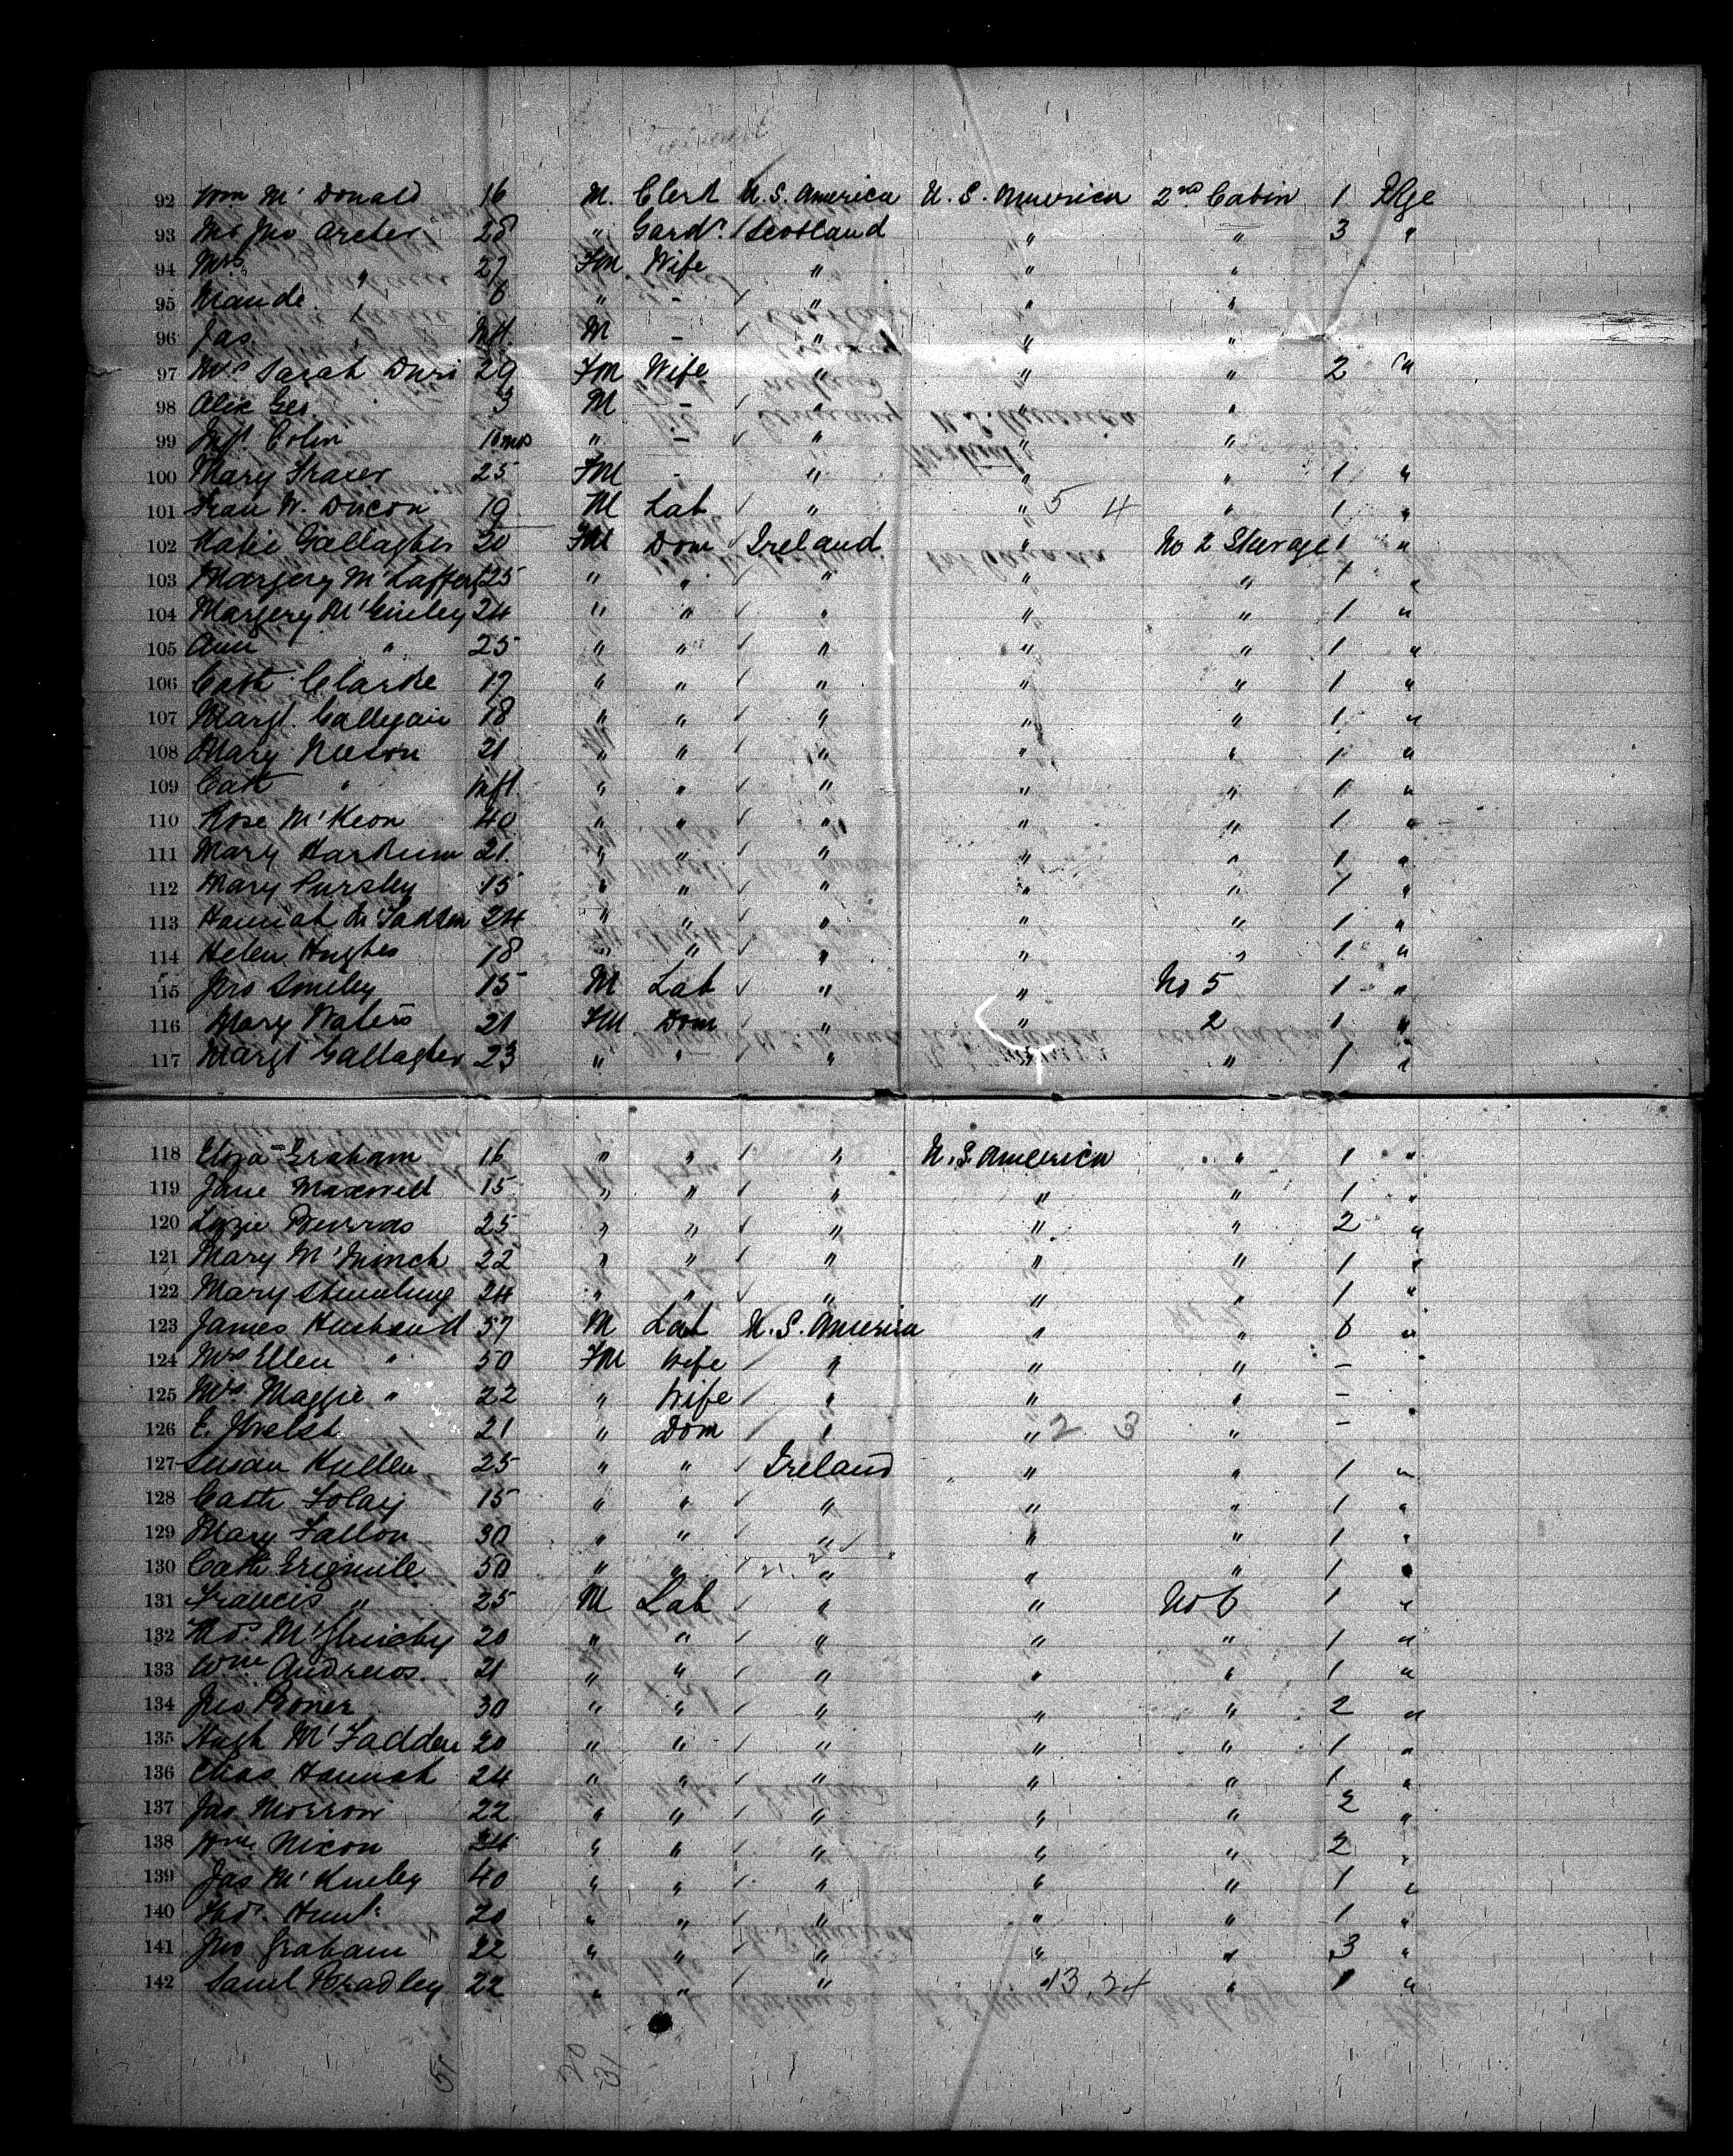 92 Wm McDonald 16 M. Clerk U.S. America U.S. America 2nd Cabin 1 Pkge
93 Mr Jno Archer 28 " Gardr. / Scotland " " 3 "
94 Mrs " 27 FM Wife " " "
95 Maude " 6 " - ✓ " " "
96 Jas. " Inft. M - ✓ " " "
97 Mrs Sarah 29 FM Wife " " " 2 "
98 Alex Geo. 3 M - ✓ " " "
99 Inft Colin 10 mos " - ✓ " " "
100 Mary Fraser 25 FM - " " " 1 "
101 W. 19 M Lab ✓ " " 5 4 " 1 "
102 Katie Gallagher 20 FM Dom Ireland " No 2 Sterage 1 "
103 Margery McLafferty 25 " " ✓ " " " 1 "
104 Margery McGinley 24 " " ✓ " " " 1 "
105 Ann " 25 " " ✓ " " " 1 "
106 Cath Clarke 17 " " ✓ " " " 1 "
107 Margt. 18 " " ✓ " " " 1 "
108 Mary 21 " " ✓ " " " 1 "
109 Cath " Inft. " " ✓ " " " 1 "
110 Rose McKeon 40 " " ✓ " " " 1 "
111 Mary 21 " " ✓ " " " 1 "
112 Mary Pursley 15 " " ✓ " " " 1 "
113 Hannah McFadden 24 " " ✓ " " " 1 "
114 Helen Hughes 18 " " ✓ " " " 1 "
115 Jno Smiley 15 M Lab ✓ " " No 5 1 "
116 Mary Waters 21 FM Dom ✓ " " 2 1 "
117 Margt Gallagher 23 " " ✓ " " " 1 "
118 Eliza Graham 16 " " / " U.S. America " 1 "
119 Jane Maxwell 15 " " ✓ " " " 1 "
120 Lizzie 25 " " ✓ " " " 2 "
121 Mary McMinch 22 " " ✓ " " " 1 "
122 Mary 24 " " ✓ " " " 1 "
123 James Husband 57 M Lab U.S. America " " 6 "
124 Mrs Ellen " 50 FM Wife / " " " -
125 Mrs. Maggie " 22 " Wife / " " " -
126 E. 21 " Dom / " " 2 3 " -
127 Susan 25 " " ✓ Ireland " " 1 "
128 Cath 15 " " ✓ " " " 1 "
129 Mary Fallon 30 " " ✓ " " " 1 "
130 Cath 50 " " / " " " 1 "
131 Francis " 25 M Lab ✓ " " No 6 1 "
132 20 " " ✓ " " " 1 "
133 Wm Andrews 21 " " ✓ " " " 1 "
134 Jas Boner 30 " " ✓ " " " 2 "
135 Hugh McFadden 20 " " ✓ " " " 1 "
136 Chas Hannah 24 " " ✓ " " " 1 "
137 Jas. Morrow 22 " " ✓ " " " 2 "
138 Wm. Nixon 24 " " ✓ " " " 2 "
139 Jas McKinley 40 " " ✓ " " " 1 "
140 Thos. Hunt 20 " " ✓ " " " 1 "
141 Jno Graham 22 " " ✓ " " " 3 "
142 Saml Bradley 22 " " ✓ " " 13 24 " 1 "